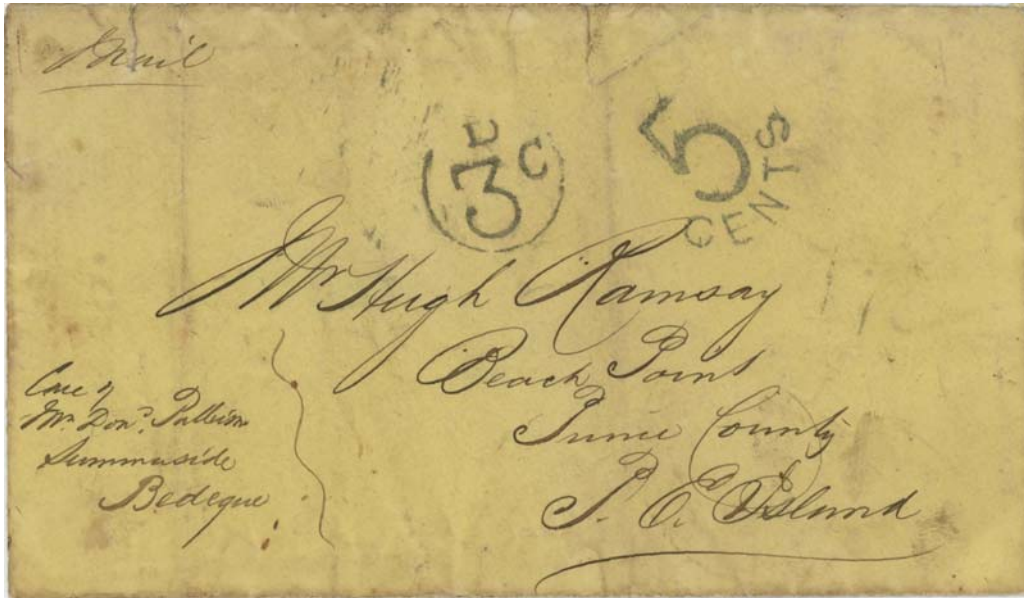 Mail
D
3 C
5
CENTS
Mr Hugh Ramsay
Beach Point
Prince County
P. E. Island
Care of
Mr Don.d
Summerside
Bedeque